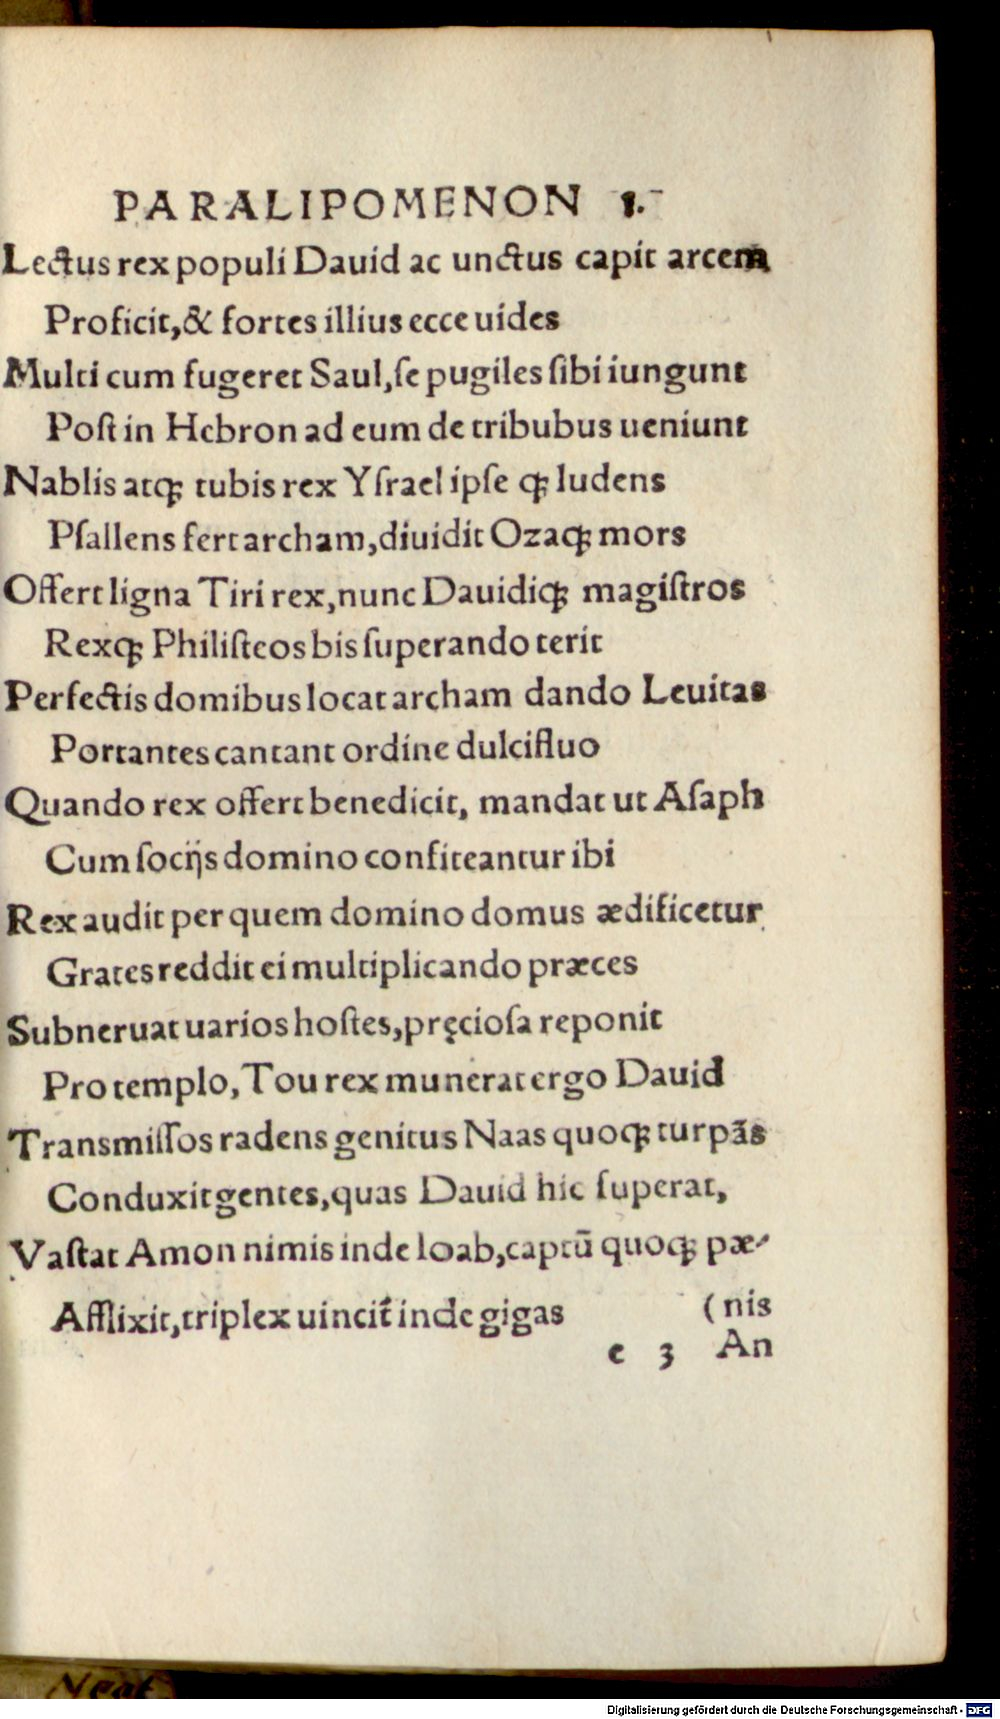 PARALIPOMENON 1.
Lectus rex populi Dauid ac unctus capit arcem
Proficit,& fortes illius ecce uides
Multi cum fugeret Saul,ſe pugiles ſibi iungunt
Poſt in Hebron ad eum de tribubus ueniunt
Nablis atqꝫ tubis rex Yſrael ipſe qꝫ ludens
Pſallens fert archam,diuidit Ozaqꝫ mors
Offert ligna Tiri rex,nunc Dauidiqꝫ magiſtros
Rexqꝫ Philiſteos bis ſuperando terit
Perfectis domibus locat archam dando Leuitas
Portantes cantant ordine dulcifluo
Quando rex offert benedicit, mandat ut Aſaph
Cum ſocijs domino confiteantur ibi
Rex audit per quem domino domus ædificetur
Grates reddit ei multiplicando præces
Subneruat uarios hoſtes,pręcioſa reponit
Pro templo,Tou rex munerat ergo Dauid
Transmiſſos radens genitus Naas quoqꝫ turpãs
Conduxit gentes,quas Dauid hic ſuperat,
Vaſtat Amon nimis inde Ioab,captũ quoqꝫ pæ-
Afflixit,triplex uincit̃ inde gigas (nis
e 3 An
Digitalisierung gefördert durch die Deutsche Forschungsgemeinschaft - DFG